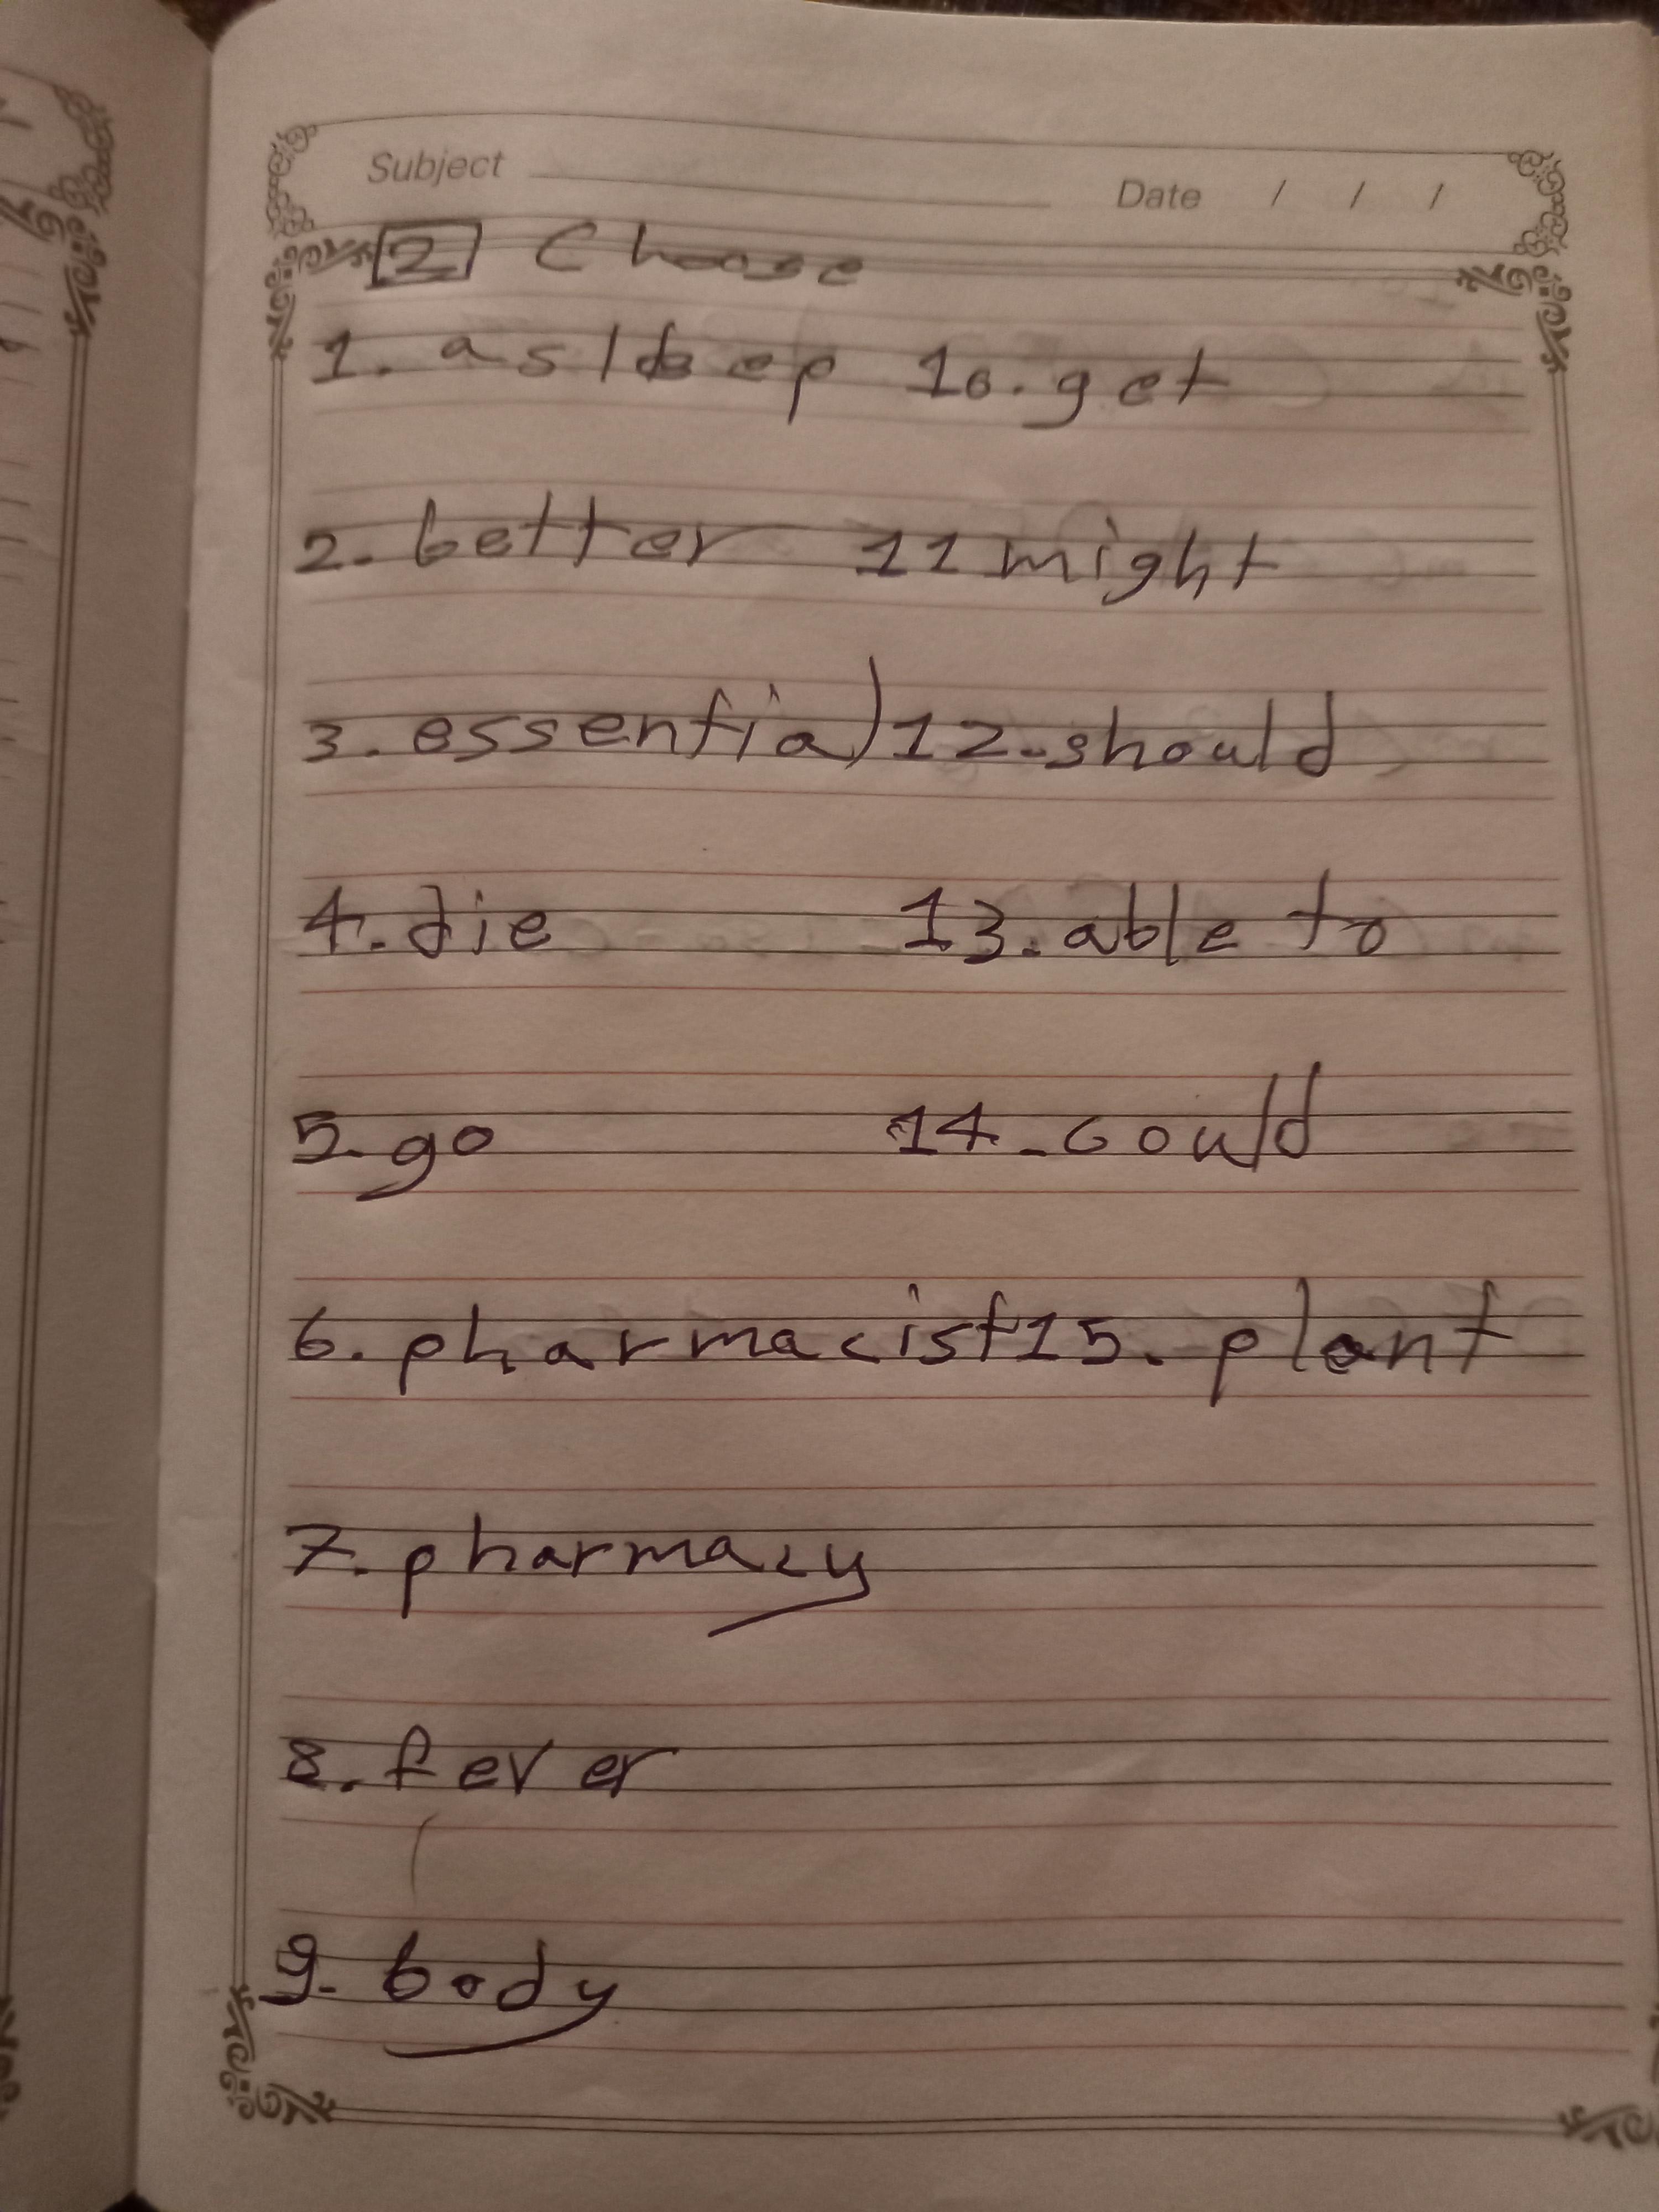 Subject Date / / /
2 Choose
1. asleep 10. get
2. better 11 might
3. essential 12. should
4. die 13. able to
5. go 14. could
6. pharmacist 15. plant
7. pharmacy
8. fever
9. body